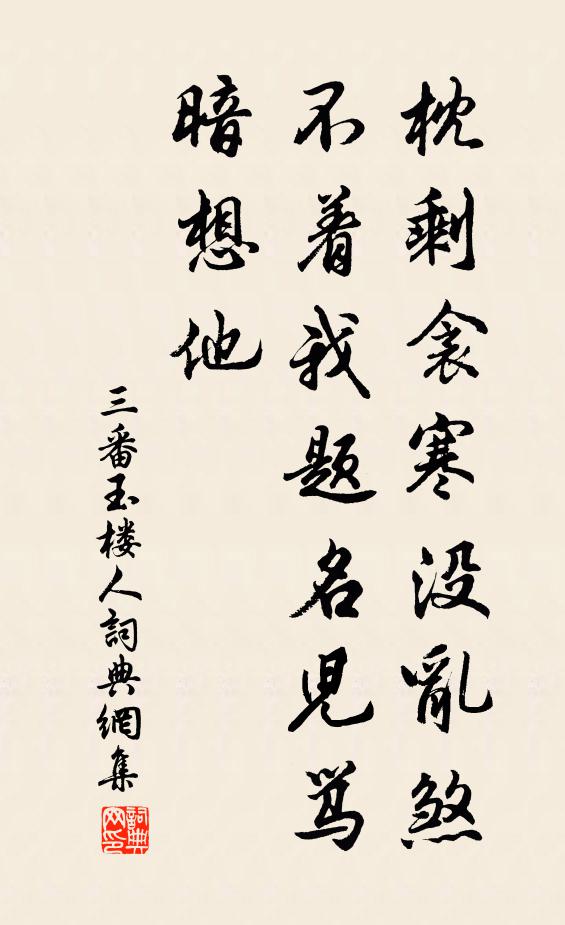 枕剩衾寒没亂煞
不着我题名児骂
暗想他
三番玉楼人詞典網集
詞典網印